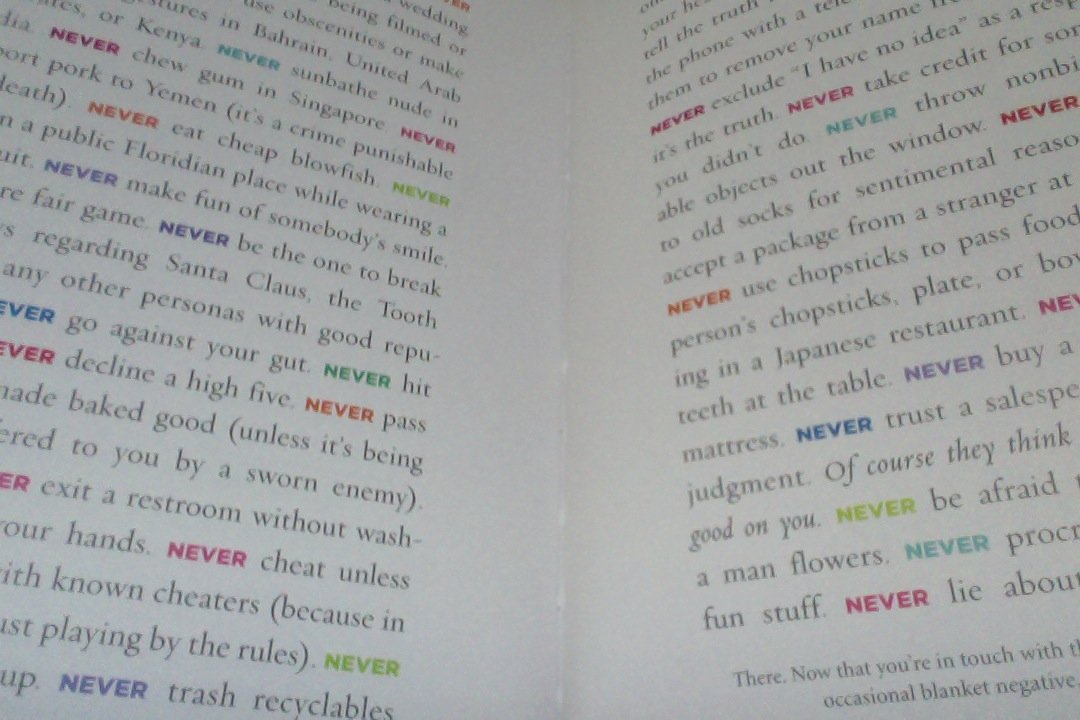 wedding
being filmed or
use obscenities or make
gestures in Bahrain, United Arab
or Kenya. NEVER sunbathe nude in
NEVER chew gum in Singapore. NEVER
pork to Yemen (it's a crime punishable
death). NEVER eat cheap blowfish. NEVER
a public Floridian place while wearing a
NEVER make fun of somebody's smile.
fair game. NEVER be the one to break
regarding Santa Claus, the Tooth
any other personas with good repu-
NEVER go against your gut. NEVER hit
NEVER decline a high five. NEVER pass
made baked good (unless it's being
to you by a sworn enemy).
exit a restroom without wash-
your hands. NEVER cheat unless
with known cheaters (because in
playing by the rules). NEVER
up. NEVER trash recyclables
your
tell the truth
the phone with a
them to remove your name
NEVER exclude "I have no idea" as a
it's the truth. NEVER take credit for
you didn't do. NEVER throw nonbi
able objects out the window. NEVER
to old socks for sentimental
accept a package from a stranger at
NEVER use chopsticks to pass food
person's chopsticks, plate, or
ing in a Japanese restaurant.
teeth at the table. NEVER buy a
mattress. NEVER trust a
judgment. Of course they think
good on you. NEVER be afraid
a man flowers. NEVER
fun stuff. NEVER lie about
There. Now that you're in touch with
occasional blanket negative